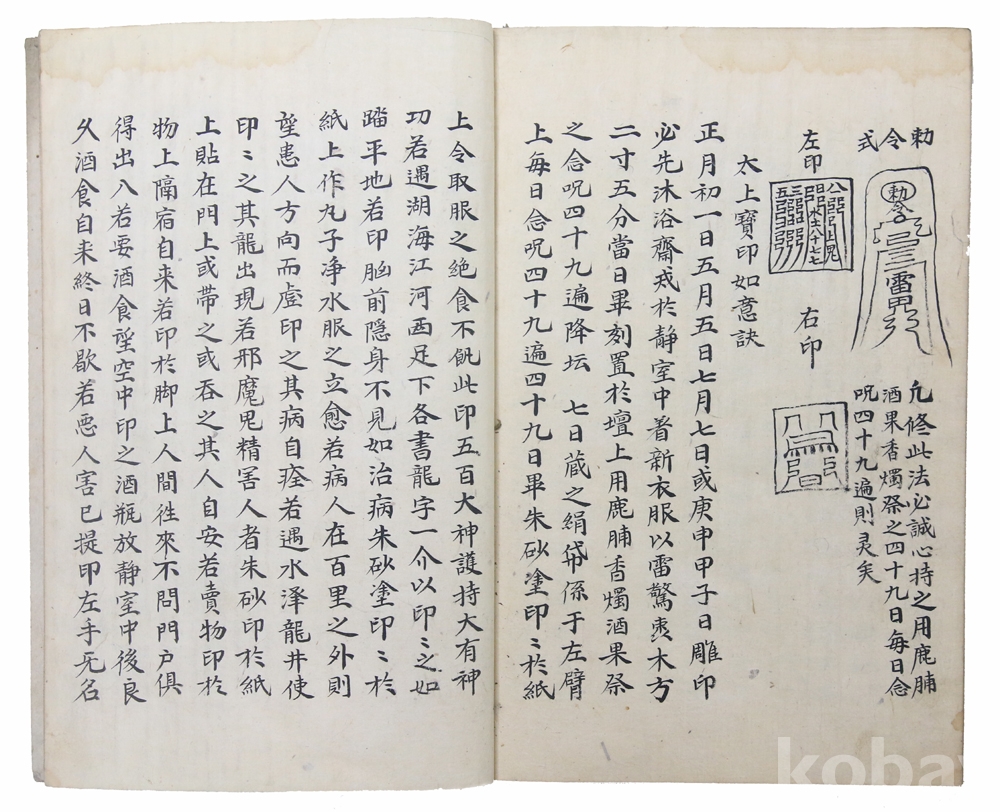 勅令式
左印
右印
凢修此法必誠心持之用鹿脯
酒果香燭祭之四十九日每日念
呪四十九遍則灵矣
太上寶印如意訣
正月初一日五月五日七月七日或庚申甲子日雕印
必先沐浴齋戒於靜室中着新衣服以雷驚棗木方
二寸五分當日畢刻置於壇上用鹿脯香燭酒果祭
之念呪四十九遍降坛 七日蔵之絹帒係于左臂
上每日念呪四十九遍四十九日畢朱砂塗印〻於紙
上令取服之绝食不飢此印五百大神護持大有神
功若遇湖海江河西足下各書龍字一介以印〻之如
踏平地若印胸前隐身不見如治病朱砂塗印〻於
紙上作丸子净水服之立愈若病人在百里之外則
望患人方向而虛印之其病自痊若遇水泽龍井使
印〻之其龍出現若邪魔鬼精害人者朱砂印於紙
上貼在門上或带之或吞之其人自安若賣物印於
物上隔宿自来若印於脚上人間徃來不問門户俱
得出入若要酒食望空中印之酒瓶放静室中後良
久酒食自来終日不歇若恶人害已提印左手无名
勅令
雷
kobay